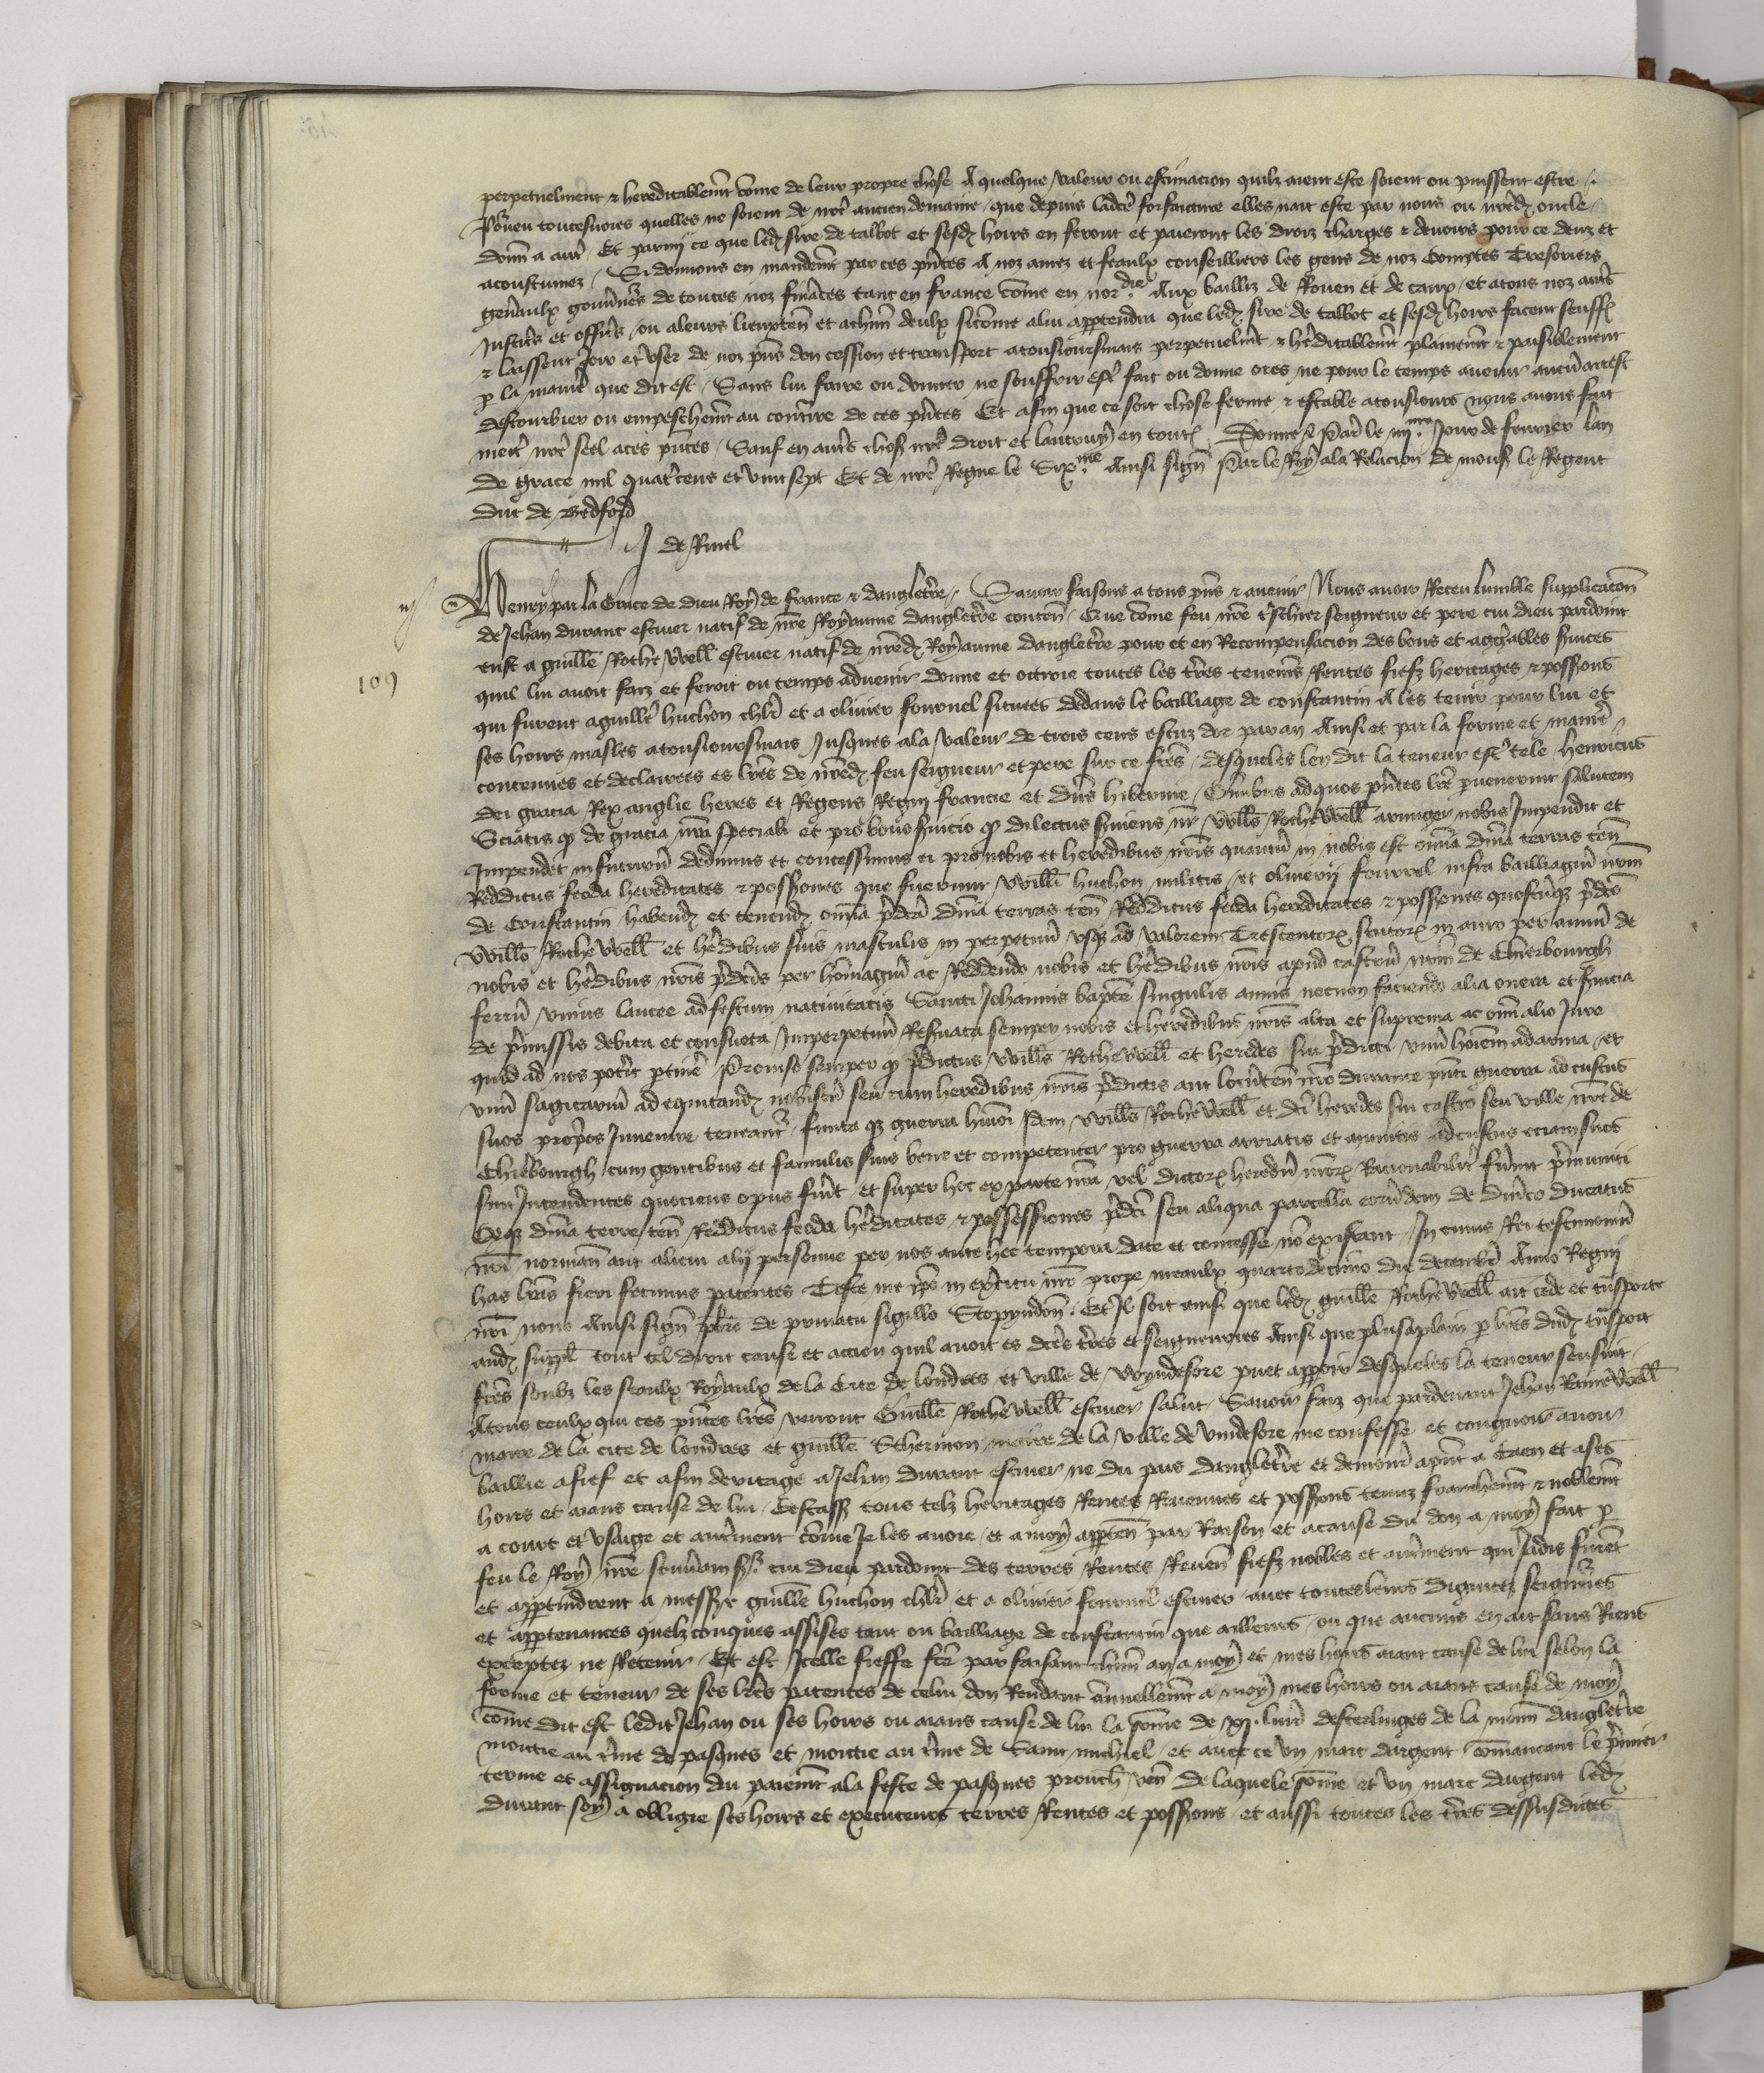 perpetuelment & hereditablemt come de leur propre chose A quelque valeur ou estimacion quilz aient este soient ou puissent estre /.
Pourveu toutesvoies quelles ne soient de nre ancien demaine / que depuis ladte forfaicture elles nait este par nous ou nredz oncle
donn a autr / Et parmy ce que ledz sire de talbot et sesdz hoirs en feront et paieront les droiz charges & devoirs pour ce deuz et
acoustumez / Si donnons en mandemt par ces pntes A noz amez et feaulx conseilliers les gens de noz Comptes Tresoriers
genaulx gouvnrs de toutes noz finaces tant en france come en nordie Aux bailliz de Rouen et de caux / et a tous noz autr
Justicrs et officrs / ou a leurs lieuxten et a chun deulx sicome a lui apptendra que ledz sire de talbot et sesdz hoirs facent seuffr
& laissent Joir et user de noz pns don cession et transport a tousioursmais perpetuelmt & heditablemt plainemt & paisiblement
p la manie que dit est / Sans lui faire ou donner ne souffrir est fait ou donne ores ne pour le temps avenir aucu arrest
destourbier ou empeschemt au contrre de ces pntes Et afin que ce soit chose ferme & estable a tousiours nous avons fait
metr nre seel a ces pntes / Sauf en autrs chos nre droit et lautruy en toutes Donne A Par le iiij me Jour de fevrier lan
de grace mil quatcens et vint sept Et de nre Regne le Six.me Ainsi sign Par le Roy a la Relacion de mons le Regent
duc de Bedford
J de Rinel
Henry par la Grace de dieu Roy de france & dangletre / Savoir faisons a tous pns & avenir Nous avoir Receu lumble supplicacion
de Jehan durant escuier natif de nre Royaume dangletre conten / Que come feu nre tschier seigneur et pere cui dieu pardoint
eust a guille Rothewell escuier natif de nredz Royaume dangletre pour et en Recompensacion des bons et aggables svices
109 quil lui avoit faiz et feroit ou temps advenir donne et octroie toutes les tres tenemns Rentes fiefz heritages & possions
qui furent a guille huchon chlr et a olivier fournel situees dedans le bailliage de constantin A les tenir pour lui et
ses hoirs masles a tousioursmais Jusques a la valeur de trois cens escuz dor par an Ainsi et par la forme et manie
contenues et declairees es lres de nredz feu seigneur et pere sur ce ftes / desqueles len dit la teneur est tele / henricus
dei gracia Rex anglie heres et Regens Regni francie et dns hibernie / Omibus ad quos pntes lre pvenerint salutem
Sciatis qd de gracia nra speciali et pro bono svicio qd dilectus sviens nr Willms Rothewell armiger nobis Impendit et
Impendet in futuru dedimus et concessimus ei pro nobis et heredibus nris quantu in nobis est omia dnia terras ten
Redditus feoda hereditates & possiones que fuerunt Willi huchon militis / et oliverij fournel infra bailliagiu nrm
de Constantin / habendz et tenendz omia pdca dnia terras ten Redditus feoda hereditates & possiones quoscuqz pdco
Willo Rothewell et hedibus suis masculis in perpetuu usqz ad valorem Trescentorx scutorx in auro per annu de
nobis et hedibus nris pdcis per homagiu ac Reddendo nobis et hedibus nris apud castru nrm de Chierbourgh
ferru unius lancee ad festum nativitatis Sancti Johannis bapte singulis annis necnon faciendo alia onera et svicia
de pmissis debita et consueta / Imperpetuu Resvata semper nobis et heredibus nris alta et suprema ac omi alio Jure
quod ad nos potit ptine Proviso semper qd pdictus Willms Rothewell et heredes sui pdicti unu hoiem ad arma / et
unu sagitariu ad equitandz nobiscu seu cum heredibus nris pdictis aut locuten nro durante pnti guerra ad custus
suos propios Invenire teneant / finita qz guerra hmoi Idem Willms Rothewell et dci heredes sui castro seu ville nre de
Chierbourgh cum gentibus et famulis suis bene et competenter pro guerra arriatis et munitis ad custus eciam suos
sint Intendentes quociens opus fuit / et super hoc ex parte nra vel dictorx heredu nrorx Racionabilit fuint pmuniti
Et qz dnia terre ten Redditus feoda heditates & possessiones pdci seu aliqua parcella eorudem de dnico ducatus
nri normann aut alicui alij persone per nos ante hec tempora date et concesse no existant / In cuius Rei testimoniu
has lras fieri fecimus patentes Teste me ipo in excitu nro prope meaulx quarto decimo die decembr Anno Regni
nri nono Ainsi sign pbre de privato sigillo Stopyndon. Et Il soit ainsi que ledz guille Rothewell ait cede et tnsporte
audz suppl tout tel droit cause et accion quil avoit es dcts tres et seigneuries Ainsi que plus a plain p lres dudz tnsport
ftes soubz les seaulx Royaulx de la Cite de londres et ville de Wyndesore puet apparoir desqueles la teneur sensuit /
A tous ceulx qui ces pntes lres verront Guille Rothewell escuier salut / Savoir faiz que pardevant Jehan Rainewell
maire de la cite de londres et guille Schermon maire de la ville de vindesore me confesse et congnois avoir
baillie a fief et a fin deritage a Jehan durant escuier ne du pais dangletre et demour apnt a Caen et a ses
hoirs et aians cause de lui / Cestass tous telz heritages Rentes Revenues et possions tenuz franchemt & noblemt
a court et usaige et autment come Je les avoie / et a moy apten par Raison et a cause du don a moy fait p
feu le Roy nre souvain sr. cui dieu pardoint des terres Rentes Reven fiefz nobles et autment qui Jadis furet
et apptindrent a messr guille huchon chlr / et a olivier fournel escuier avec toutes leurs dignitez seigneries
et apptenances quelzconques assises tant ou bailliage de constantin que ailleurs / ou que aucuns en ait sans Riens
exceptez ne Retenir / Et est Icelle fieffe fte par faisant chun an a moy et mes hoirs aiant cause de lui selon la
forme et teneur de ses lres patentes de celui don Rendant annuellemt a moy mes hoirs ou aians cause de moy
come dit est ledit Jehan ou ses hoirs ou aians cause de lui la some de xj. livrs desterlinges de la monn dangletre
moitie au tme de pasques et moitie au tme de Saint michiel / et avec ce un marc dargent comancant le pmier
terme et assignacion du paiemt a la feste de pasques prouch ven de laquele some et un marc dargent ledz
durant soy a obligie ses hoirs et executeurs terres Rentes et possions et aussi toutes les tres dessusdictes